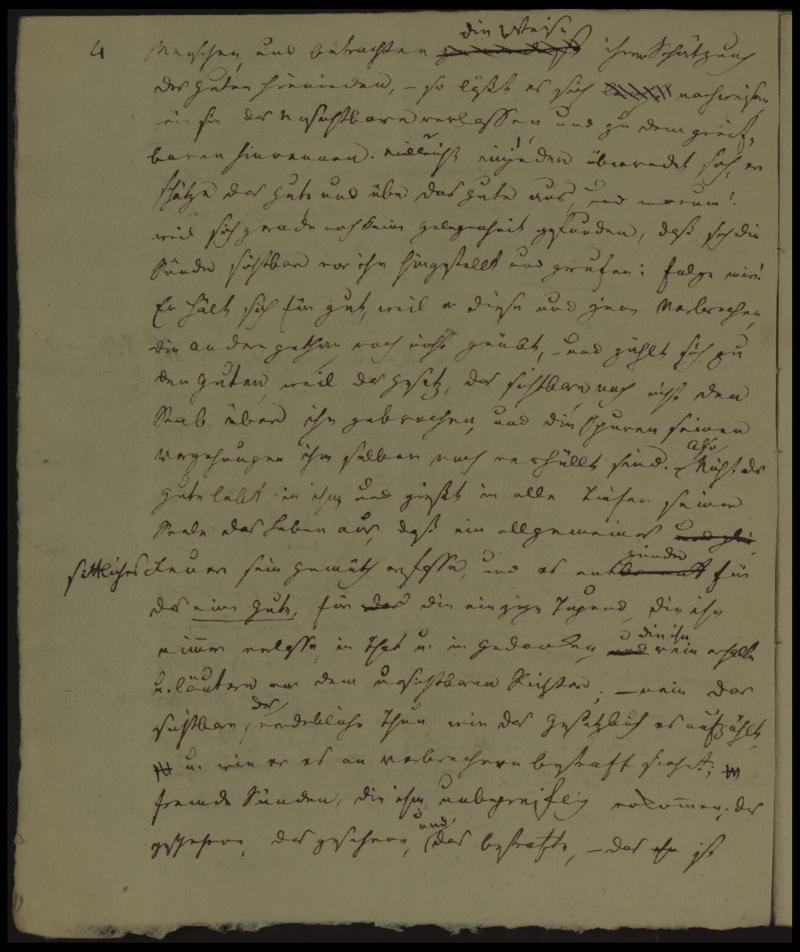 4
die Weise
Menschen, und betrachten ihrer Schätzung
des guten hienieden, – so läßt es sich nachweisen,
wie sie das Unsichtbare verlassen, und zu dem greif-
baren hinrennen. Vielleicht ein jeder überredet sich, er
schätze das gute und übe das gute aus, und warum?
weil sich gerade noch keine gelegenheit gefunden, daß sich die
Sünde sichtbar vor ihn hingestellt und gerufen: folge mir!
Er hält sich für gut, weil er diese und jene Verbrechen,
die andere gethan noch nicht geübt, – und zählt sich zu
den guten, weil das gesetz, das sichtbare noch nicht den
Stab über ihn gebrochen, und die Spuren seiner
Vergehungen ihm selber noch verhüllt sind. Also Nicht das
gute lebt in ihm und gießt in alle Tiefen seiner
Seele das Leben aus, daß ein allgemeines
sittliches Feuer sein gemüth erfasse, und es entzünde für
das eine gute, für die einzige Tugend, die ihn
nimmer verlasse, in That u. in gedanken, die ihn rein erhalte
u. läutere vor dem unsichtbaren Richter; – nein das
sichtbare, das Thun wie das gesetzbuch es aufzählt,
u. wie er es an verbrechern bestraft sieht;
fremde Sünden, die ihm unbegreiflich vorkommen, das
geschehene, das gesehene, und das bestrafte, – das ist